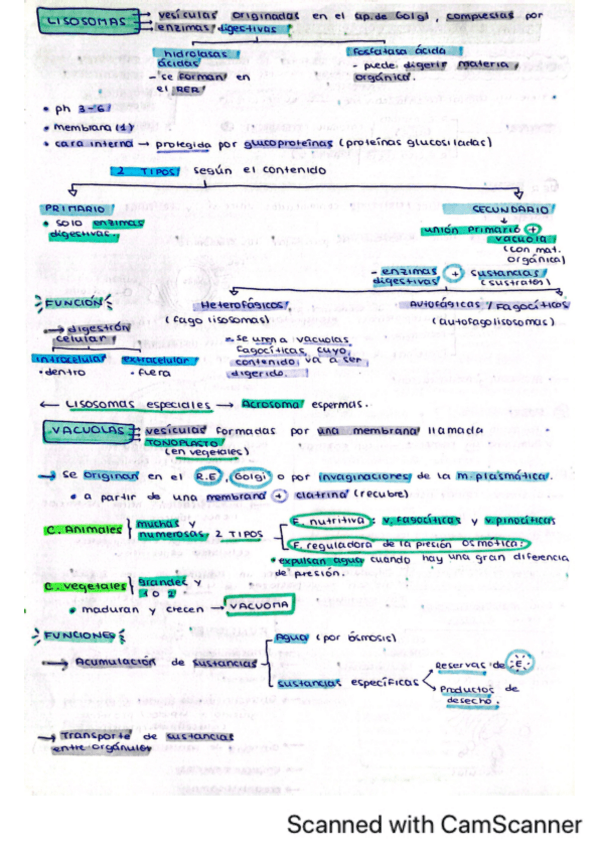 LISOSOMAS → vesículas originadas en el ap. de Golgi, compuestas por
→ enzimas digestivas
hidrolasas ácidas
- se forman en el RER
Fosfatasa ácida
- puede digerir materia orgánica.
• ph 3-6
• membrana (1)
• cara interna → protegida por glucoproteínas (proteínas glucosiladas)
2 TIPOS según el contenido
PRIMARIO
• solo enzimas digestivas
SECUNDARIO
unión primario + vacuola
(con mat. orgánica)
- enzimas digestivas + sustancias (sustratos)
Heterofágicos
(fago lisosomas)
- se unen a vacuolas fagocíticas, cuyo contenido va a ser digerido.
AUTOFÁGICAS / Fagocíticos
(autofagolisosomas)
FUNCIÓN
→ digestión celular
intracelular
• dentro
extracelular
• fuera
← Lisosomas especiales → Acrosoma espermas.
VACUOLAS → vesículas formadas por una membrana llamada
TONOPLASTO
(en vegetales)
→ se originan en el R.E, Golgi o por invaginaciones de la m. plasmática.
• a partir de una membrana + clatrina (recubre)
C. Animales } muchas y numerosas, 2 TIPOS
F. nutritiva: v. fagocíticas y v. pinocíticas
F. reguladora de la presión osmótica:
• expulsan agua cuando hay una gran diferencia de presión.
C. vegetales } grandes y 1 o 2
• maduran y crecen → VACUOMA
FUNCIONES
→ Acumulación de sustancias
Agua (por ósmosis)
sustancias específicas
Reservas de E.
Productos de desecho.
→ Transporte de sustancias entre orgánulos
Scanned with CamScanner